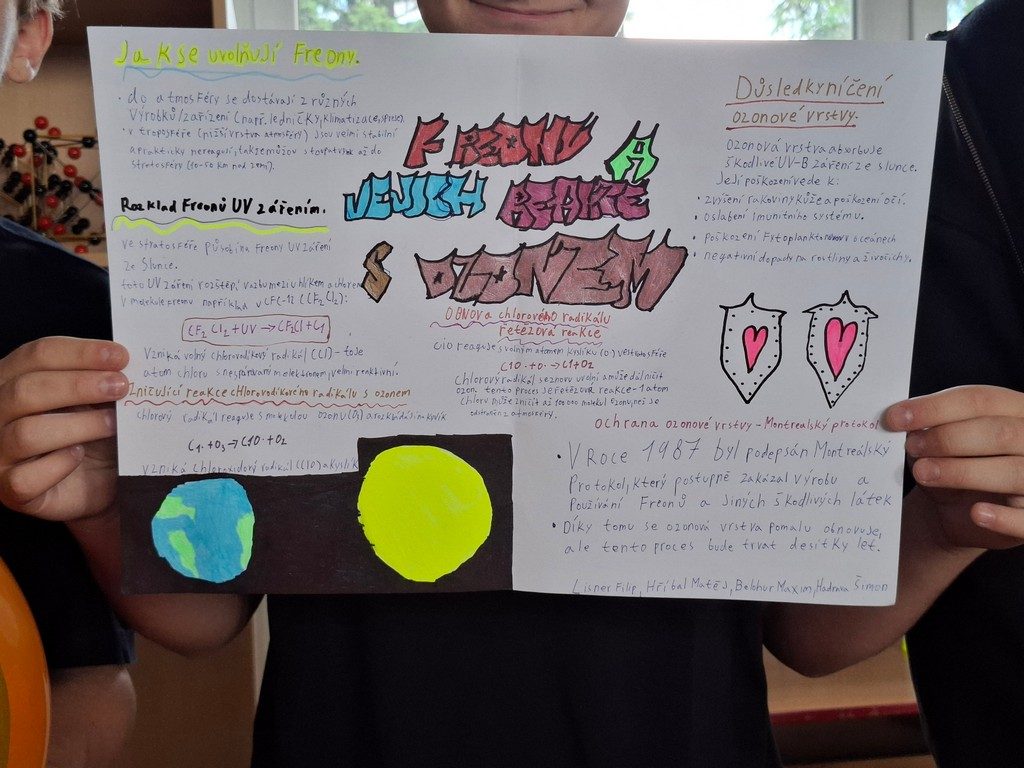 Jak se uvolňují Freony.
• do atmosféry se dostávají z různých
výrobků/zařízení (např. ledničky, klimatizace, spreje).
• v troposféře (nižší vrstva atmosféry) jsou velmi stabilní
a prakticky nereagují, takže můžou stoupat vzhůru až do
stratosféry (10-50 km nad zemí).
Rozklad Freonů UV zářením.
ve stratosféře působí na freony UV záření
ze Slunce.
toto UV záření rozštěpí vazbu mezi uhlíkem a chlorem
v molekule freonu například v CFC-12 (CF2Cl2):
CF2Cl2 + UV → CF2Cl + Cl
Vzniká volný chlorovodíkový radikál (Cl) - to je
atom chloru s nespárovaným elektronem, velmi reaktivní.
Zničující reakce chlorovodíkového radikálu s ozonem
chlorový radikál reaguje s molekulou ozonu (O3) a rozkládá ji na kyslík
Cl. + O3 → ClO· + O2
vzniká chloroxidový radikál (ClO) a kyslík
FREONY A
JEJICH REAKCE
S OZONEM
OBNOVA chlorového radikálu
řetězová reakce
ClO reaguje s volným atomem kyslíku (O) ve stratosféře
ClO· + O· → Cl + O2
Chlorový radikál se znovu uvolní a může dál ničit
ozon. tento proces je řetězová reakce - 1 atom
chloru může zničit až 100 000 molekul ozonu, než je
odstraněn z atmosféry.
Důsledky ničení
ozonové vrstvy.
Ozonová vrstva absorbuje
škodlivé UV-B záření ze slunce.
Její poškození vede k:
• zvýšení rakoviny kůže a poškození očí.
• oslabení imunitního systému.
• poškození fytoplanktonu v oceánech
• negativní dopady na rostliny a živočichy.
ochrana ozonové vrstvy - Montrealský protokol
• V roce 1987 byl podepsán Montreálský
Protokol, který postupně zakázal výrobu a
používání Freonů a jiných škodlivých látek
• Díky tomu se ozonová vrstva pomalu obnovuje,
ale tento proces bude trvat desítky let.
Lisner Filip, Hříbal Matěs, Belohur Maxim, Hadrava Šimon